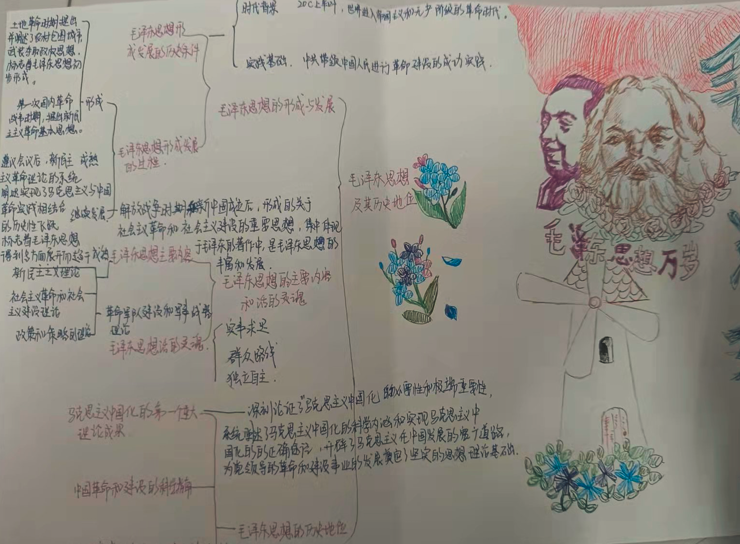 时代背景
实践基础 中共带领中国人民进行革命建设的成功实践
毛泽东思想形
成发展的历史条件
土地革命时期提出
并阐述了农村包围城市
武装夺取政权思想,
标志着毛泽东思想初
步形成。
形成
第一次国内革命
战争时期,提出新民
主主义革命基本思想。
毛泽东思想形成发展
的过程
毛泽东思想的形成与发展
毛泽东思想
及其历史地位
遵义会议后,新民主 成熟
主义革命理论的系统
阐述实现了马克思主义与中国
革命实践相结合
的历史性飞跃
标志着毛泽东思想
得到多方面展开而趋于成熟
继续发展
解放战争时期和新中国成立后,形成的关于
社会主义革命和社会主义建设的重要思想,集中体现
于毛泽东的著作中,是毛泽东思想的
丰富和发展
毛泽东思想主要内容
新民主主义理论
社会主义革命和社会
主义建设理论
革命军队建设和军事战略
理论
政策和策略的理论
毛泽东思想的主要内容
和活的灵魂
毛泽东思想活的灵魂
实事求是
群众路线
独立自主
马克思主义中国化的第一个重大
理论成果
深刻论证了马克思主义中国化的必要性和极端重要性,
系统阐述了马克思主义中国化的科学内涵和实现马克思主义中
国化的的正确途径,开辟了马克思主义在中国发展的宽广道路,
为党领导的革命和建设事业的发展奠定了坚实的思想理论基础。
中国革命和建设的科学指南
毛泽东思想的历史地位
毛泽东思想万岁